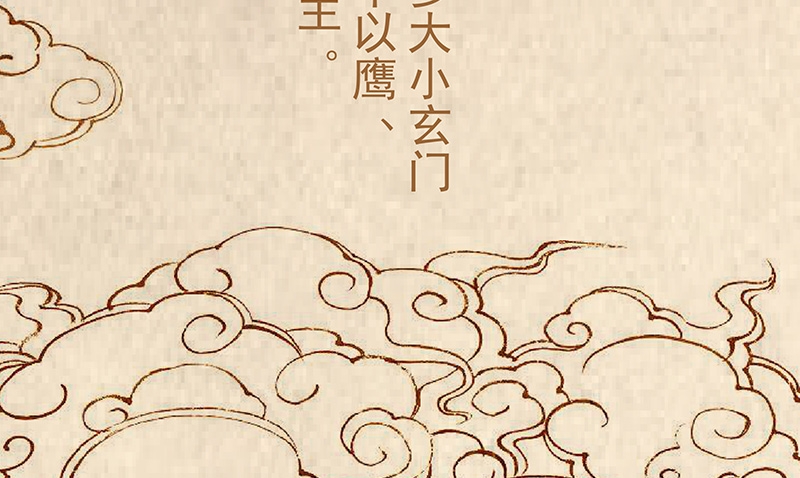 大小玄门
以鹰、
主。